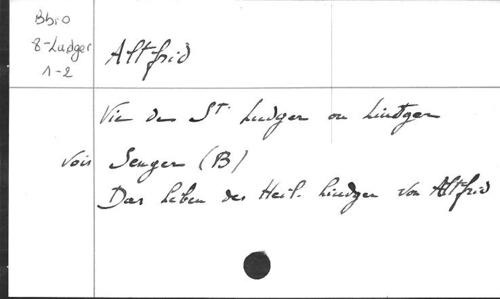 Bbio
8-Ludger
1-2
Altfrid
Vie de St. Ludger ou Liudger
vois Senger (B)
Das Leben des Heil. Liudger von Altfrid